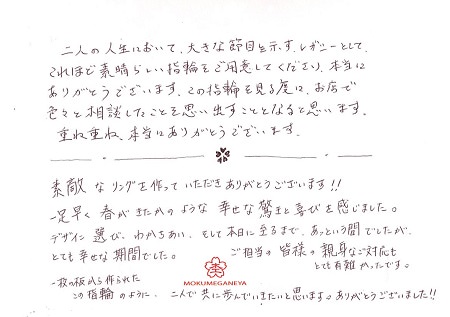 二人の人生において、大きな節目を示す、レガシーとして、
これほど素晴らしい指輪をご用意してくださり、本当に
ありがとうございます。この指輪を見る度に、お店で
色々と相談したことを思い出すこととなると思います。
重ね重ね、本当にありがとうございます。
素敵なリングを作っていただきありがとうございます!!
一足早く春がきたかのような幸せな驚きと喜びを感じました。
デザイン選び、わかちあい、そして本日に至るまで、あっという間でしたが、
とても幸せな期間でした。
ご担当の皆様の親身なご対応も
とても有難かったです。
一枚の板から作られた
この指輪のように、二人で共に歩んでいきたいと思います。ありがとうございました!!
MOKUMEGANEYA